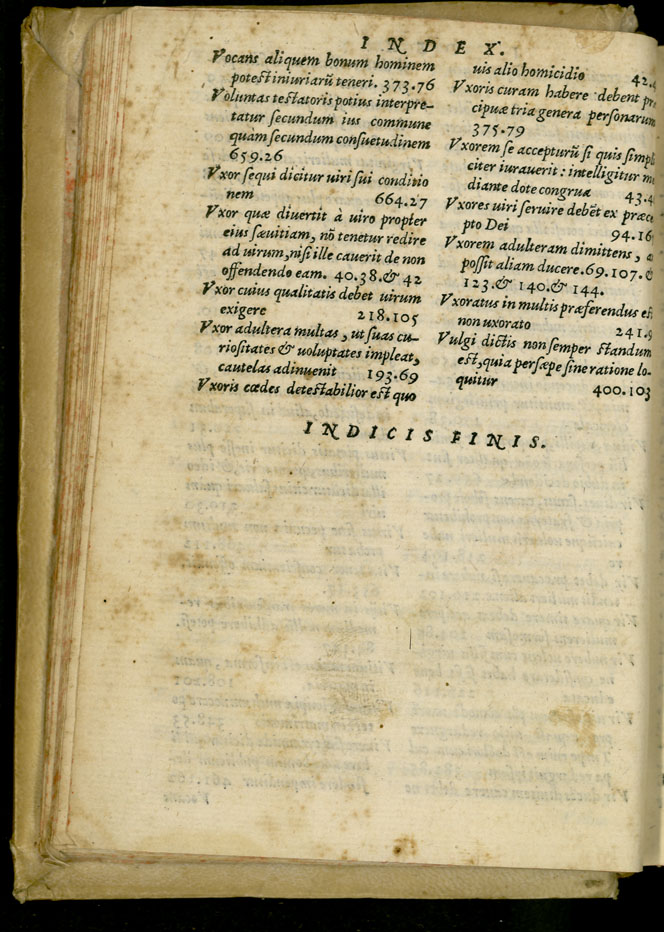 INDEX.
Vocans aliquem bonum hominem
potest iniuriarũ teneri. 373.76
Voluntas testatoris potius interpre-
tatur secundum ius commune
quam secundum consuetudinem
659.26
Vxor sequi dicitur uiri sui conditio
nem 664.27
Vxor quæ diuertit à uiro propter
eius sæuitiam, nõ tenetur redire
ad uirum, nisi ille cauerit de non
offendendo eam. 40.38. & 42
Vxor cuius qualitatis debet uirum
exigere 218.105
Vxor adultera multas, ut suas cu-
riositates & uoluptates impleat,
cautelas adinuenit 193.69
Vxoris cædes detestabilior est quo
uis alio homicidio 42.4
Vxoris curam habere debent præ
cipuæ tria genera personarum
375.79
Vxorem se accepturũ si quis simpli
citer iurauerit: intelligitur me
diante dote congrua 43.4
Vxores uiri seruire debẽt ex præce
pto Dei 94.16
Vxorem adulteram dimittens, a
possit aliam ducere. 69.107. &
123. & 140. & 144.
Vxoratus in multis præferendus est
non uxorato 241.9
Vulgi dictis non semper standum
est, quia persæpe sine ratione lo-
quitur 400.103
INDICIS FINIS.